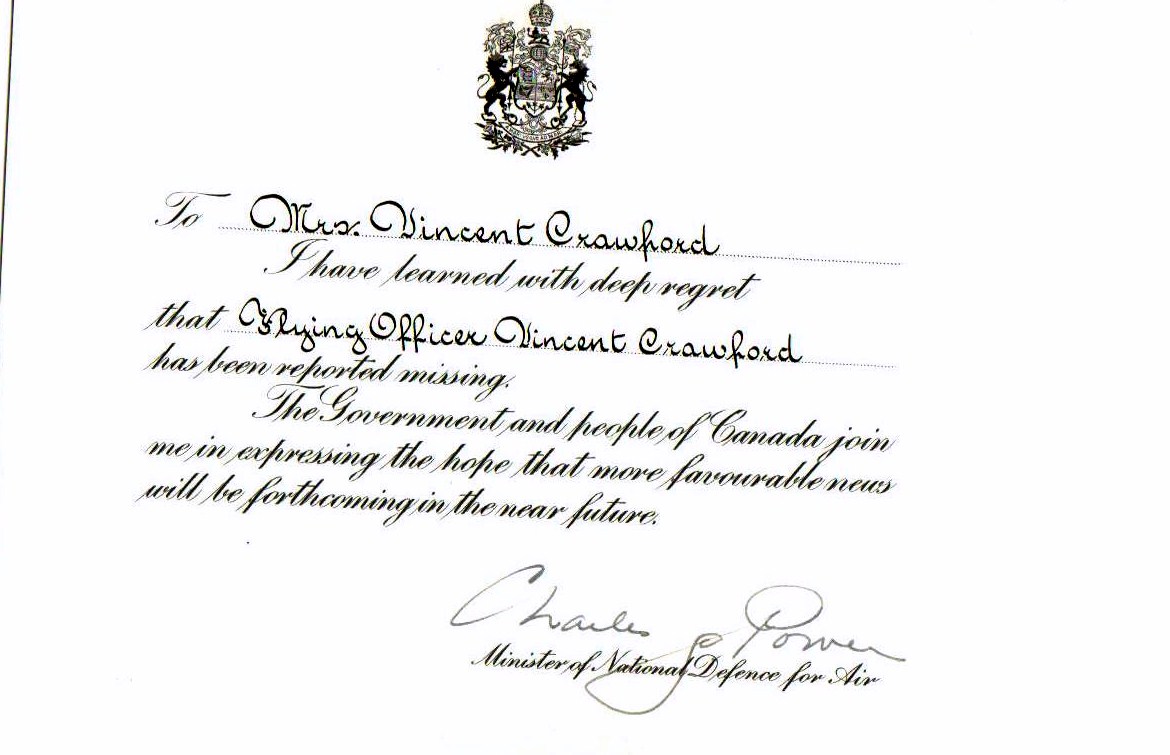 To Mrs. Vincent Crawford
I have learned with deep regret
that Flying Officer Vincent Crawford
has been reported missing.
The Government and people of Canada join
me in expressing the hope that more favourable news
will be forthcoming in the near future.
Charles G Power
Minister of National Defence for Air